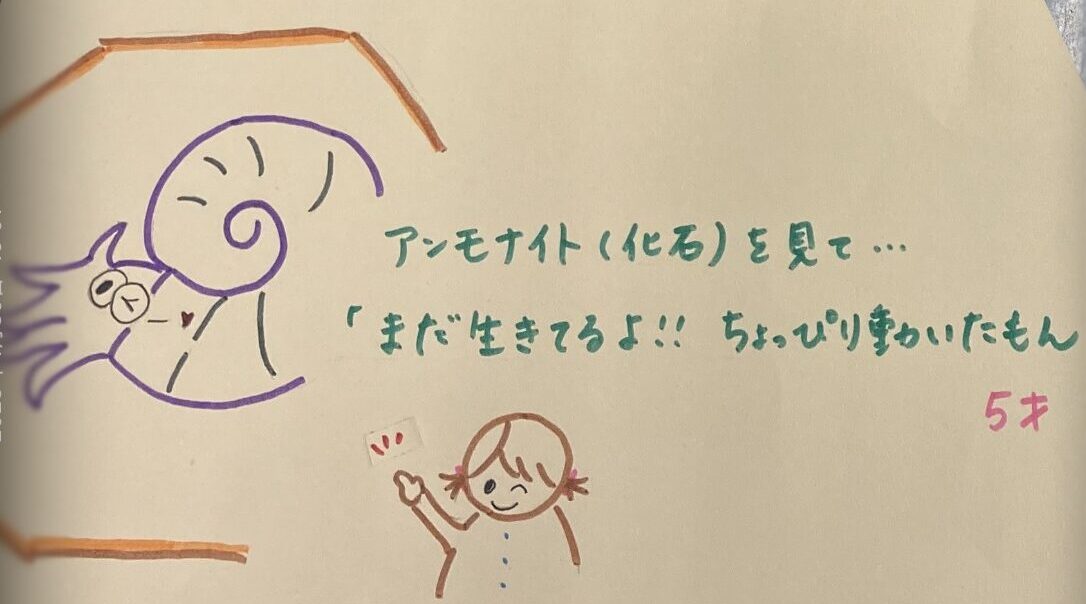 アンモナイト(化石)を見て…
「まだ生きてるよ!! ちょっぴり動いたもん
5才